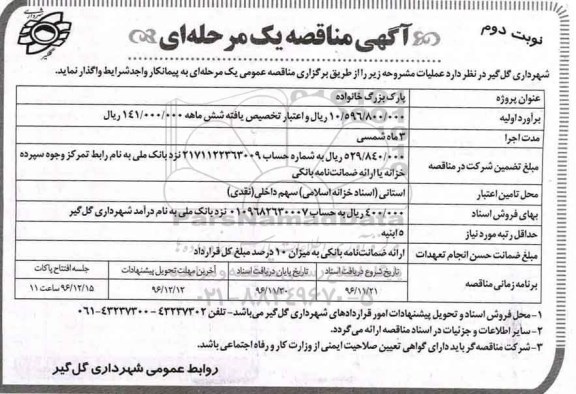 نوبت دوم
آگهی مناقصه یک مرحله‌ای
شهرداری گل‌گیر در نظر دارد عملیات مشروحه زیر را از طریق برگزاری مناقصه عمومی یک مرحله‌ای به پیمانکار واجد شرایط واگذار نماید.
عنوان پروژه پارک بزرگ خانواده
برآورد اولیه ۱۰/۵۹۶/۸۰۰/۰۰۰ ریال و اعتبار تخصیص یافته شش ماهه ۱۴۱/۰۰۰/۰۰۰ ریال
مدت اجرا ۳ ماه شمسی
مبلغ تضمین شرکت در مناقصه ۵۲۹/۸۴۰/۰۰۰ ریال به شماره حساب ۲۱۷۱۱۲۲۳۶۳۰۰۹ نزد بانک ملی به نام رابط تمرکز وجوه سپرده
خزانه یا ارائه ضمانت‌نامه بانکی
محل تامین اعتبار استانی (اسناد خزانه اسلامی) سهم داخلی (نقدی)
بهای فروش اسناد ۴۰۰/۰۰۰ ریال به حساب ۰۱۰۹۶۸۲۶۳۰۰۰۷ نزد بانک ملی به نام درآمد شهرداری گل‌گیر
حداقل رتبه مورد نیاز ۵ ابنیه
مبلغ ضمانت حسن انجام تعهدات ارائه ضمانت‌نامه بانکی به میزان ۱۰ درصد مبلغ کل قرارداد
برنامه زمانی مناقصه
تاریخ شروع دریافت اسناد تاریخ پایان دریافت اسناد آخرین مهلت تحویل پیشنهادات جلسه افتتاح پاکات
۹۶/۱۱/۲۱ ۹۶/۱۱/۳۰ ۹۶/۱۲/۱۲ ۹۶/۱۲/۱۵ ساعت ۱۱
۱- محل فروش اسناد و تحویل پیشنهادات امور قراردادهای شهرداری گل‌گیر می‌باشد - تلفن ۴۳۲۳۷۳۰۲ - ۴۳۲۳۷۳۰۰-۰۶۱
۲- سایر اطلاعات و جزئیات در اسناد مناقصه ارائه می‌گردد.
۳- شرکت مناقصه‌گر باید دارای گواهی تعیین صلاحیت ایمنی از وزارت کار و رفاه اجتماعی باشد.
روابط عمومی شهرداری گل‌گیر
ParsNamadData
۰۲۱-۸۸۳۴۹۶۷۰-۵